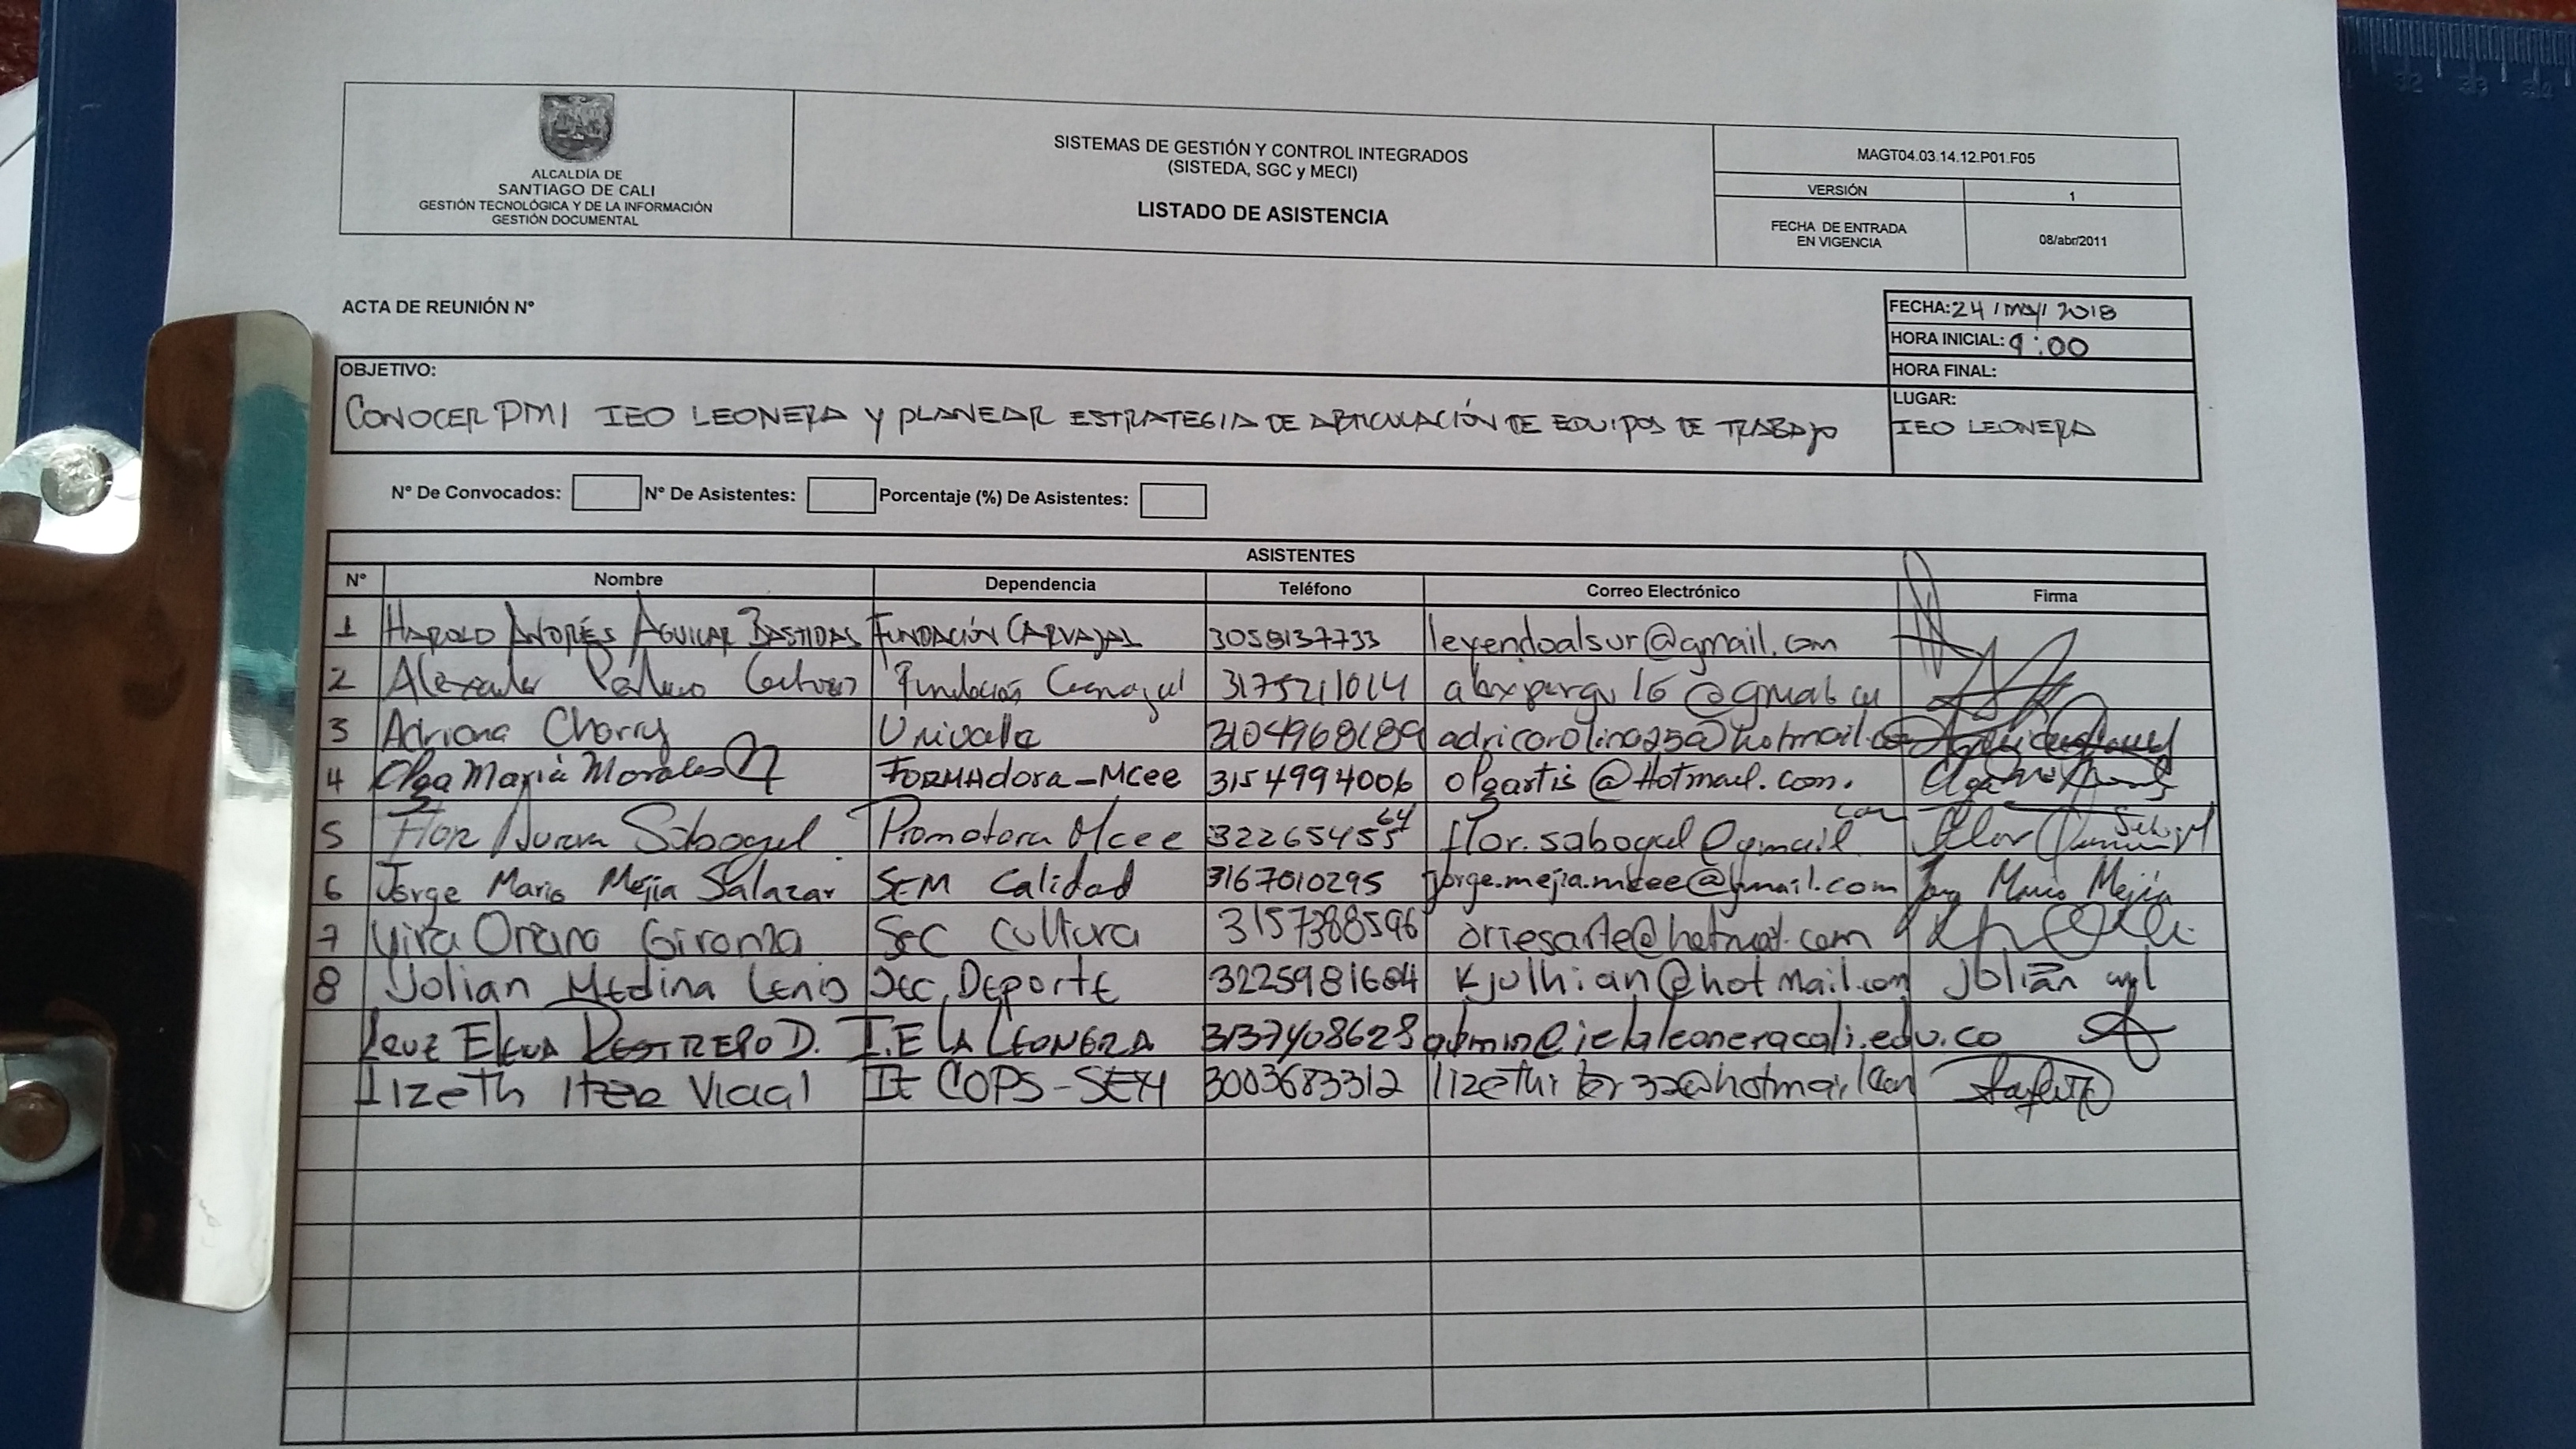 ALCALDÍA DE
SANTIAGO DE CALI
GESTIÓN TECNOLÓGICA Y DE LA INFORMACIÓN
GESTIÓN DOCUMENTAL
SISTEMAS DE GESTIÓN Y CONTROL INTEGRADOS
(SISTEDA, SGC y MECI)
LISTADO DE ASISTENCIA
MAGT04.03.14.12.P01.F05
VERSIÓN 1
FECHA DE ENTRADA
EN VIGENCIA 08/abr/2011
ACTA DE REUNIÓN N°
FECHA: 24 / may / 2018
HORA INICIAL: 9:00
HORA FINAL:
LUGAR:
IEO LEONERA
OBJETIVO:
CONOCER PMI IEO LEONERA Y PLANEAR ESTRATEGIA DE ARTICULACIÓN DE EQUIPOS DE TRABAJO
N° De Convocados: N° De Asistentes: Porcentaje (%) De Asistentes:
ASISTENTES
N° Nombre Dependencia Teléfono Correo Electrónico Firma
1 HAROLD ANDRÉS AGUILAR BASTIDAS FUNDACIÓN CARVAJAL 3058137733 leyendoalsur@gmail.com
2 Alexander Fundación Carvajal 3175211014
3 Adriana Charry Univalle 3104968189
4 Olga María Morales FORMAdora-MCee 3154994006 olgartis@Hotmail.com.
5 Flor Sabogal Promotora Mcee flor.sabogal@gmail.com
6 Jorge Mario Mejía Salazar SEM Calidad 3167010295 jorge.mejia.mcee@gmail.com Jorge Mario Mejía
7 Sec Cultura 3157388596 oriesarte@hotmail.com
8 Julian Medina Lenis Sec, Deporte kjulhian@hotmail.com Julián
RESTREPO D. I.E LA LEONERA 3137408628 admin@ielaleoneracali.edu.co
Lizeth COPS-SEM 3003683312